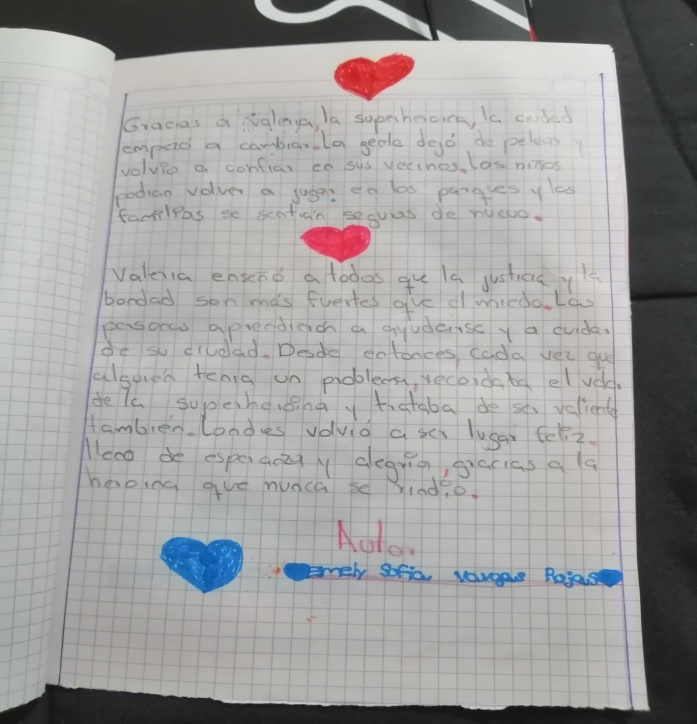 Gracias a Valeria, la superheroina, la ciudad
empezó a cambiar. La gente dejó de pelear y
volvio a confiar en sus vecinos. Los niños
podian volver a jugar en los parques y las
familias se sentian seguras de nuevo.
Valeria enseñó a todos que la justicia y la
bondad son más fuertes que el miedo. Las
personas aprendieron a ayudarse y a cuidar
de su ciudad. Desde entonces, cada vez que
alguien tenia un problema, recordaba el
de la superheroina y trataba de ser valiente
también. Londres volvió a ser lugar feliz
lleno de esperanza y alegria, gracias a la
heroina que nunca se rindio.
Autor
Emely Sofia Vargas Rojas